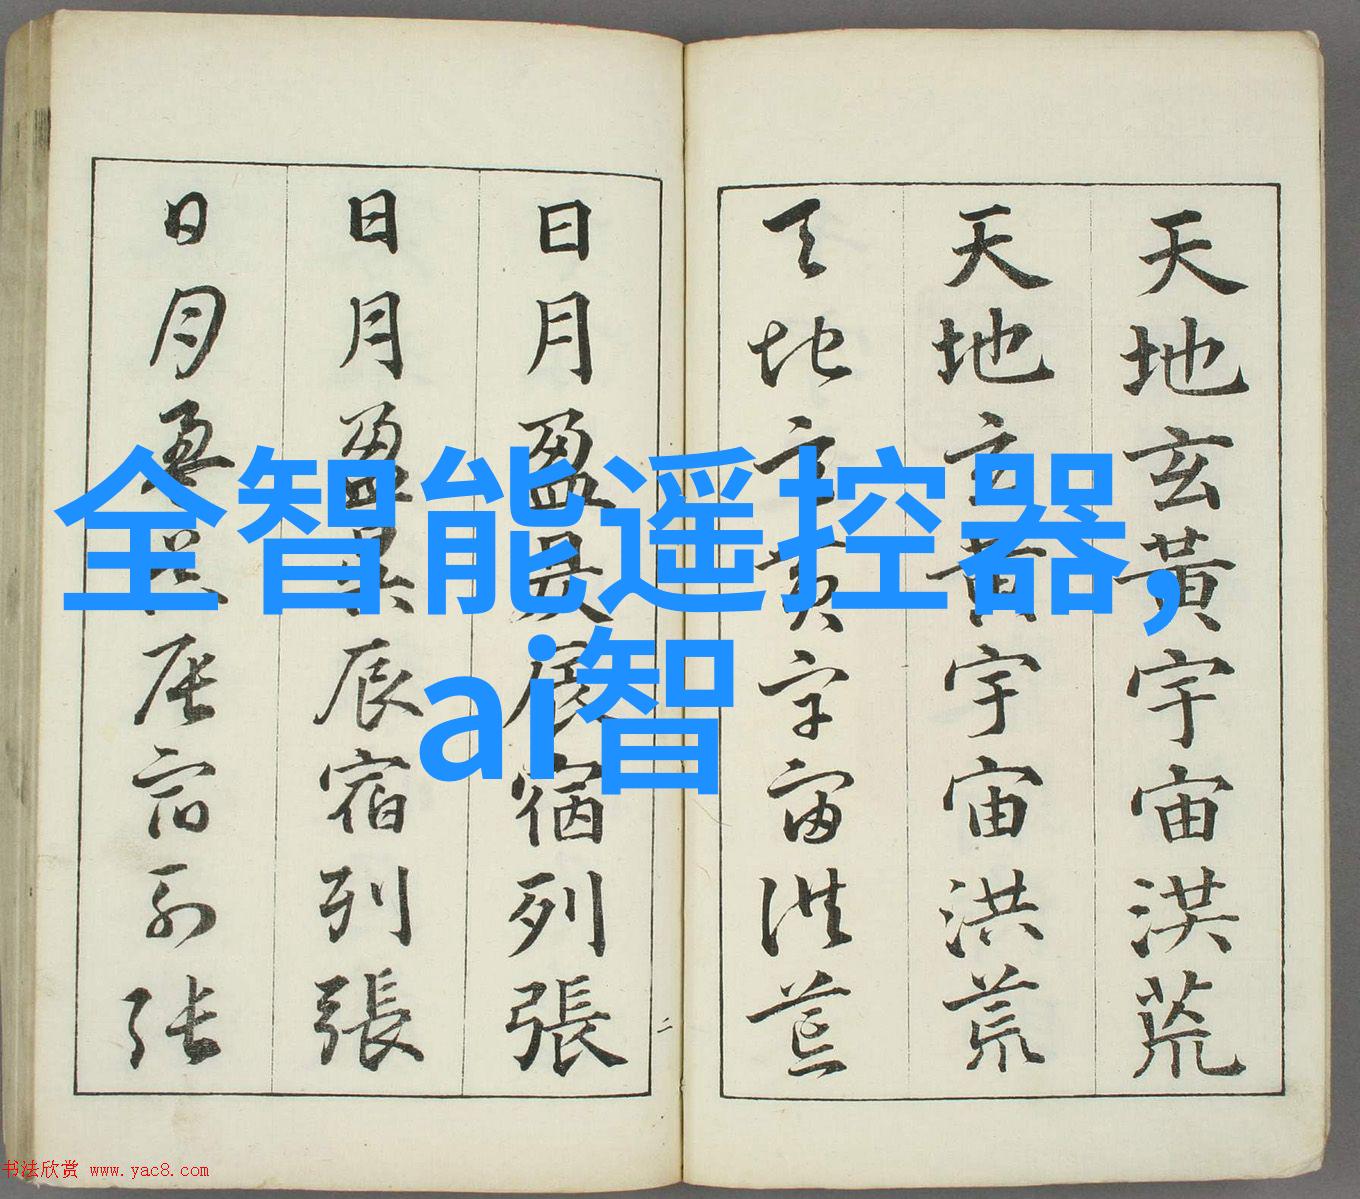 天地玄黃宇宙洪荒
天地玄黃宇宙洪荒
天地玄黃宇宙洪荒
日月盈昃辰宿列張
日月盈昃辰宿列張
日月盈昃辰宿列張
二
全智能遥控器,
ai智
书法欣赏 www.yac8.com